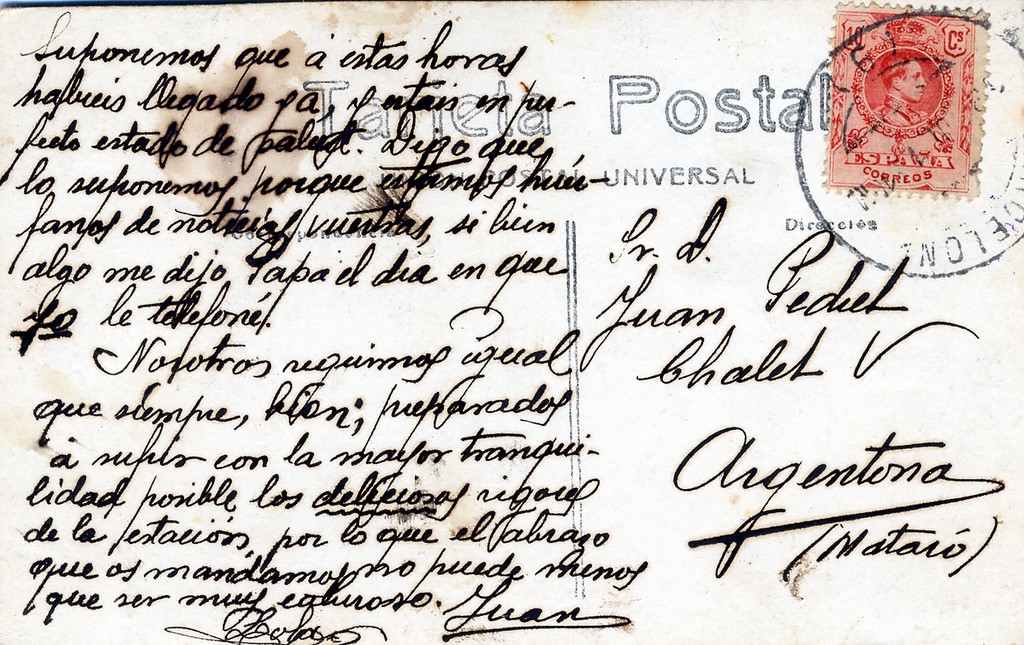 Suponemos que á estas horas
habieis llegado ya, y estais en per-
fecto estado de salud. Digo que
lo suponemos porque estamos huér-
fanos de noticias vuestras, si bien
algo me dijo Papa el dia en que
yo le telefoné.
Nosotros seguimos igual
que siempre, bien; preparados
á sufrir con la mayor tranqui-
lidad posible los deliciosos rigores
de la estación, por lo que el abrazo
que os mandamos no puede menos
que ser muy caluroso. Juan
Lola
Tarjeta Postal
POSTAL UNIVERSAL
Dirección
Sr. D.
Juan
Chalet
Argentona
(Mataró)
10 Cs
ESPAÑA
CORREOS